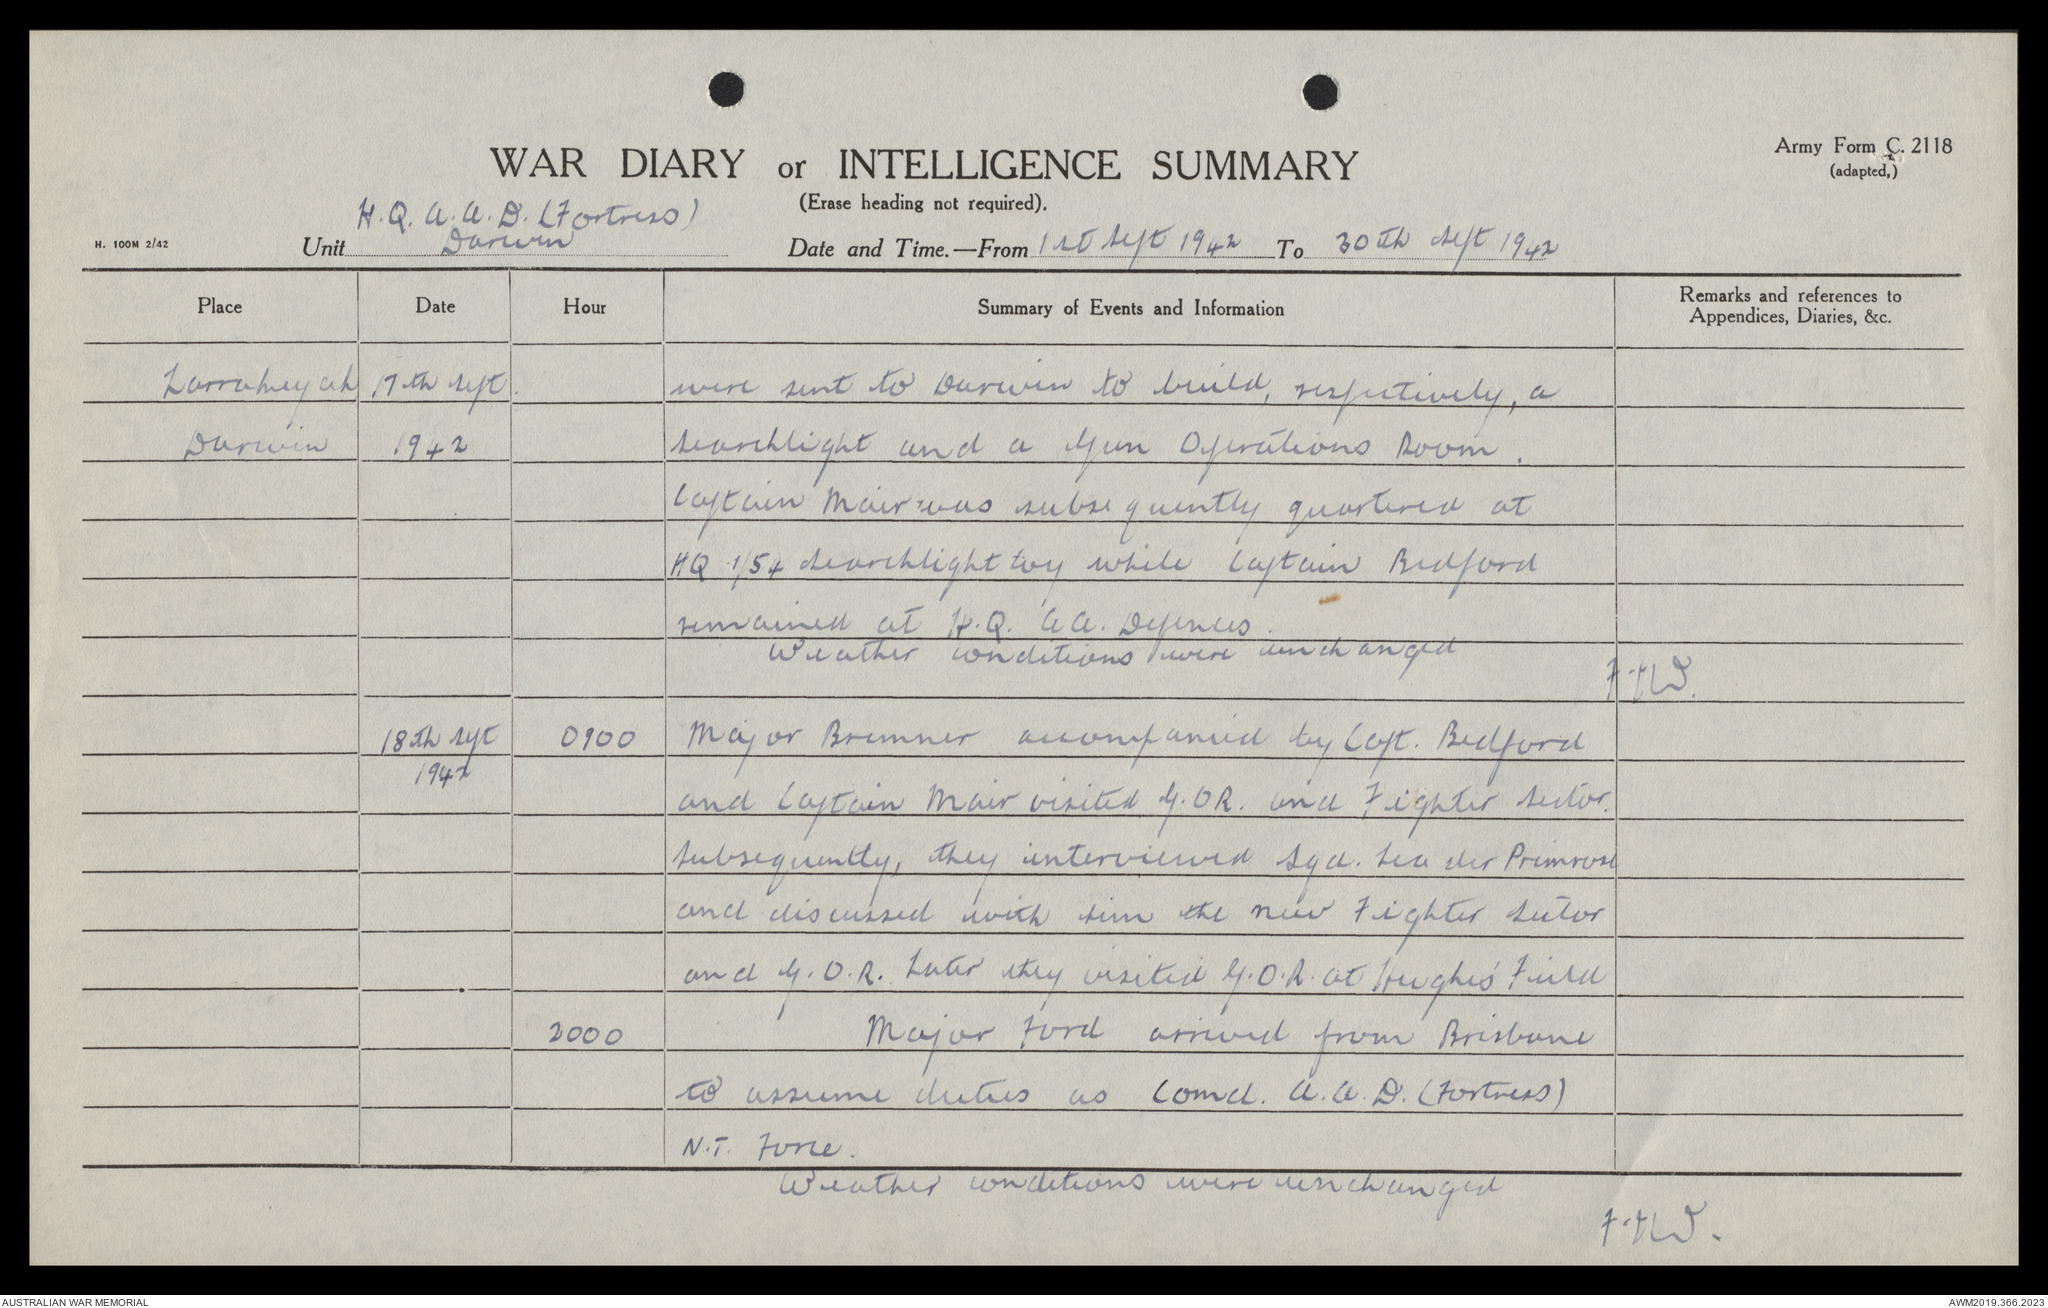 WAR DIARY or INTELLIGENCE SUMMARY
Army Form C. 2118
(adapted,)
(Erase heading not required).
H. 100M 2/42
Unit H.Q. A.A.D. (Fortress)
Darwin
Date and Time.—From 1st Sept 1942 To 30th Sept 1942
Place Date Hour Summary of Events and Information Remarks and references to
Appendices, Diaries, &c.
Larrakeyah 17th Sept. were sent to Darwin to build, respectively, a
Darwin 1942 Searchlight and a Gun Operations Room.
Captain Mair was subsequently quartered at
HQ 1/54 Searchlight Coy while Captain Bedford
remained at H.Q. AA. Defences.
Weather conditions were unchanged
18th Sept 0900 Major Bremner accompanied by Capt. Bedford
1942
and Captain Mair visited G.O.R. and Fighter Sector.
Subsequently, they interviewed Sqd. Leader Primrose
and discussed with him the new Fighter Sector
and G.O.R. Later they visited G.O.R. at Hughes' Field
2000 Major Ford arrived from Brisbane
to assume duties as Comd. A.A.D. (Fortress)
N.T. Force.
Weather conditions were unchanged
AUSTRALIAN WAR MEMORIAL
AWM2019.366.2023